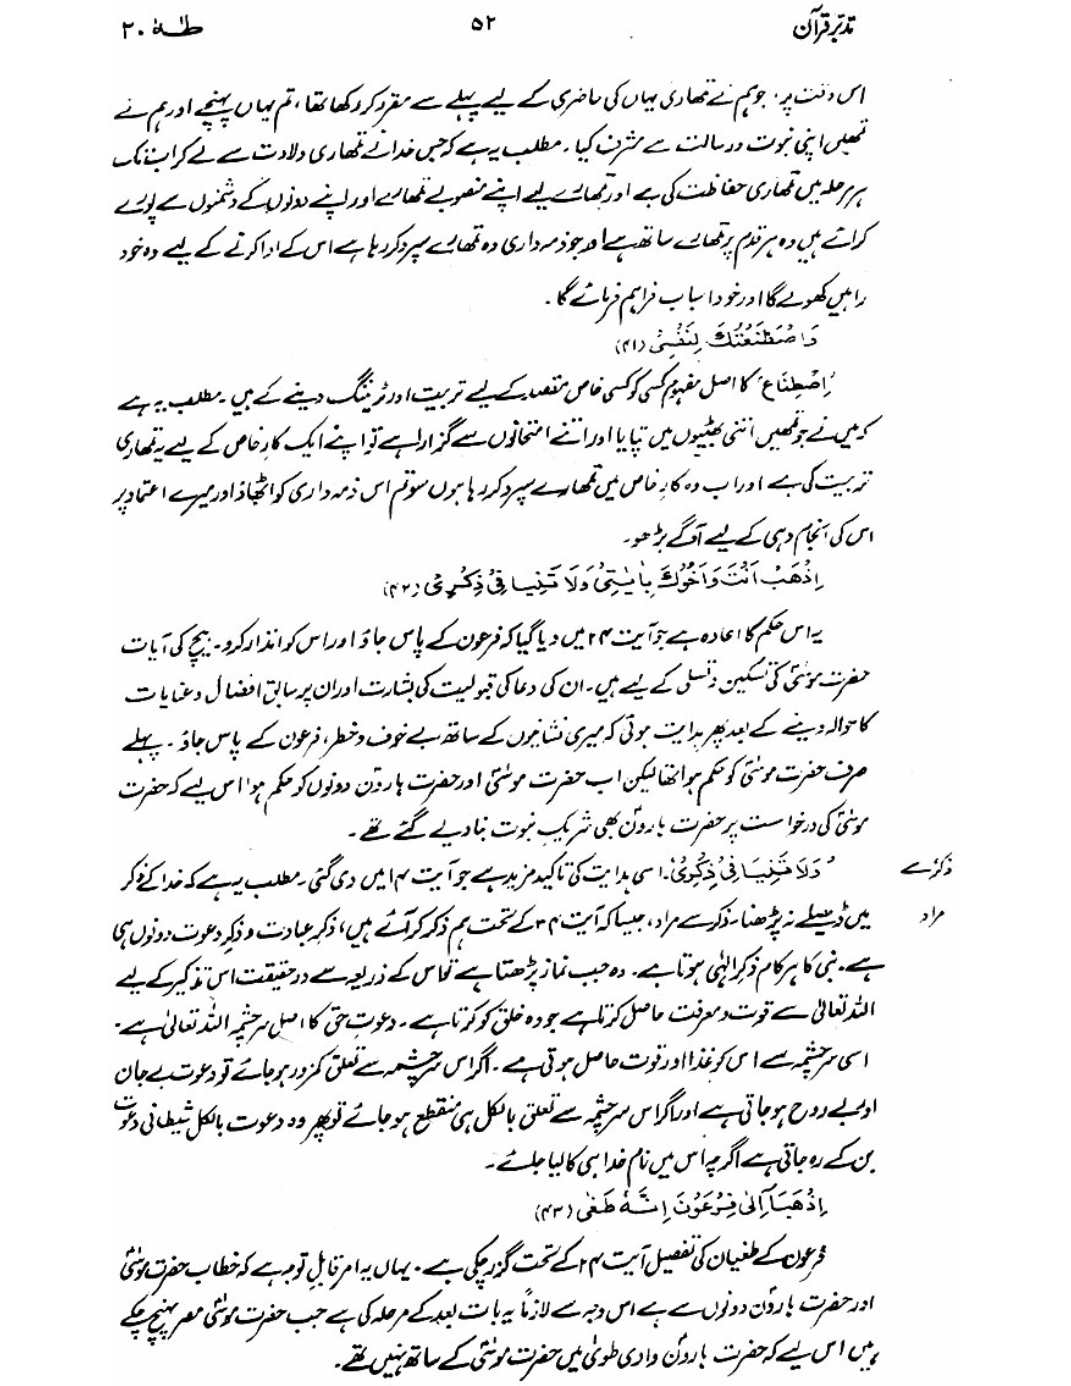 تدبّرِ قرآن ۵۲ طٰہٰ ۲۰
اس وقت پر، جو ہم نے تمھاری یہاں کی حاضری کے لیے پہلے سے مقرر کر رکھا تھا، تم یہاں پہنچے اور ہم نے
تمھیں اپنی نبوت و رسالت سے مشرف کیا۔ مطلب یہ ہے کہ جس خدا نے تمھاری ولادت سے لے کر اب تک
ہر مرحلہ میں تمھاری حفاظت کی ہے اور تمھارے لیے اپنے منصوبے تمھارے اور اپنے دونوں کے دشمنوں سے پورے
کرائے ہیں وہ ہر قدم پر تمھارے ساتھ ہے اور جو ذمہ داری وہ تمھارے سپرد کر رہا ہے اس کے ادا کرنے کے لیے وہ خود
راہیں کھولے گا اور خود اسباب فراہم فرمائے گا۔
وَاصْطَنَعْتُكَ لِنَفْسِیْ (۴۱)
’اِصْطِنَاع‘ کا اصل مفہوم کسی کو کسی خاص مقصد کے لیے تربیت اور ٹریننگ دینے کے ہیں۔ مطلب یہ ہے
کہ میں نے جو تمھیں اتنی بھٹیوں میں تپایا اور اتنے امتحانوں سے گزارا ہے تو اپنے ایک کارِ خاص کے لیے یہ تمھاری
تربیت کی ہے اور اب وہ کارِ خاص میں تمھارے سپرد کر رہا ہوں سو تم اس ذمہ داری کو اٹھاؤ اور میرے اعتماد پر
اس کی انجام دہی کے لیے آگے بڑھو۔
اِذْهَبْ اَنْتَ وَاَخُوْكَ بِاٰیٰتِیْ وَلَا تَنِیَا فِیْ ذِكْرِیْ (۴۲)
یہ اس حکم کا اعادہ ہے جو آیت ۲۴ میں دیا گیا کہ فرعون کے پاس جاؤ اور اس کو انذار کرو۔ بیچ کی آیات
حضرت موسٰیؑ کی تسکین و تسلی کے لیے ہیں۔ ان کی دعا کی قبولیت کی بشارت اور ان پر سابق افضال و عنایات
کا حوالہ دینے کے بعد پھر ہدایت ہوئی کہ میری نشانیوں کے ساتھ بے خوف و خطر، فرعون کے پاس جاؤ۔ پہلے
صرف حضرت موسٰیؑ کو حکم ہوا تھا لیکن اب حضرت موسٰیؑ اور حضرت ہارونؑ دونوں کو حکم ہوا اس لیے کہ حضرت
موسٰیؑ کی درخواست پر حضرت ہارونؑ بھی شریکِ نبوت بنا دیے گئے تھے۔
ذکر سے
مراد
’وَلَا تَنِیَا فِیْ ذِكْرِیْ‘۔ اسی ہدایت کی تاکید مزید ہے جو آیت ۱۴ میں دی گئی۔ مطلب یہ ہے کہ خدا کے ذکر
میں ڈھیلے نہ پڑھنا۔ ذکر سے مراد، جیسا کہ آیت ۳۴ کے تحت ہم ذکر کر آئے ہیں، ذکرِ عبادت و ذکرِ دعوت دونوں ہی
ہے۔ نبی کا ہر کام ذکرِ الٰہی ہوتا ہے۔ وہ جب نماز پڑھتا ہے تو اس کے ذریعہ سے درحقیقت اس تذکیر کے لیے
اللہ تعالیٰ سے قوت و معرفت حاصل کرتا ہے جو وہ خلق کو کرتا ہے۔ دعوتِ حق کا اصل سرچشمہ اللہ تعالیٰ ہے۔
اسی سرچشمہ سے اس کو غذا اور قوت حاصل ہوتی ہے۔ اگر اس سرچشمہ سے تعلق کمزور ہو جائے تو دعوت بے جان
اور بے روح ہو جاتی ہے اور اگر اس سرچشمہ سے تعلق بالکل ہی منقطع ہو جائے تو پھر وہ دعوت بالکل شیطانی دعوت
بن کے رہ جاتی ہے اگرچہ اس میں نام خدا ہی کا لیا جائے۔
اِذْهَبَاۤ اِلٰی فِرْعَوْنَ اِنَّهٗ طَغٰی (۴۳)
فرعون کے طغیان کی تفصیل آیت ۲۴ کے تحت گزر چکی ہے۔ یہاں یہ امر قابلِ توجہ ہے کہ خطاب حضرت موسٰیؑ
اور حضرت ہارونؑ دونوں سے ہے اس وجہ سے لازماً یہ بات بعد کے مرحلہ کی ہے جب حضرت موسٰیؑ مصر پہنچ چکے
ہیں اس لیے کہ حضرت ہارونؑ وادی طویٰ میں حضرت موسٰیؑ کے ساتھ نہیں تھے۔